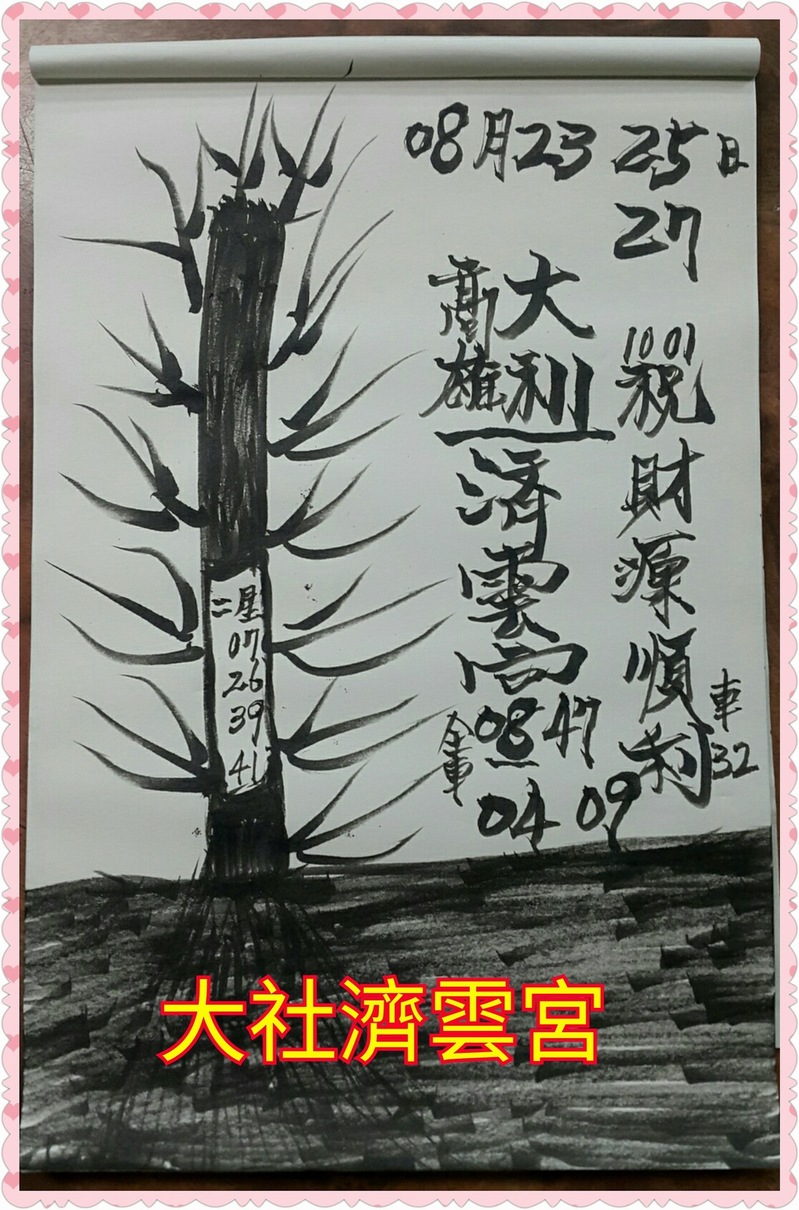 08月23 25日
27
1001
祝財源順利
車32
大利
高雄
濟雲宮
08 47
全車
04 09
二星
07
26
39
41
大社濟雲宮